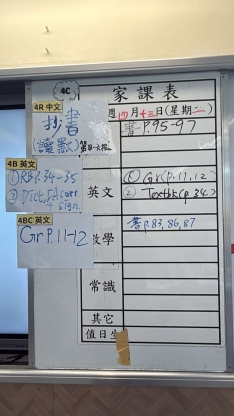 4C
家課表
週四月十三日(星期二)
4R 中文
抄書
書P.95-97
4B 英文
① RBP.34-35
② Dict. 5A corr
+ sign.
英文
① Gr(p.11,12)
② Textbk(p.34)
4BC 英文
Gr P.11-12
數學
書P.83,86,87
常識
其它
值日生